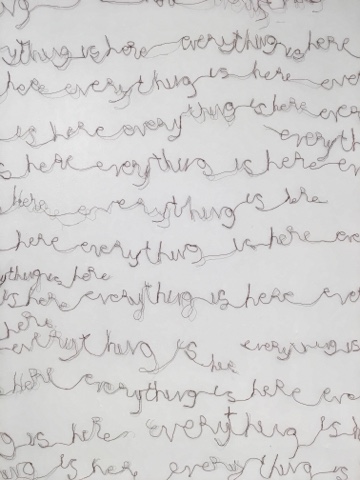 ything is here everything is here
here everything is here eve
is here everything is here every
everyth
is here everything is here ev
Here everything is here
here everything is here eve
ything is here
is here everything is here eve
here
everything is here everything is
Here everything is here eve
g is here everything is h
ing is here everything is